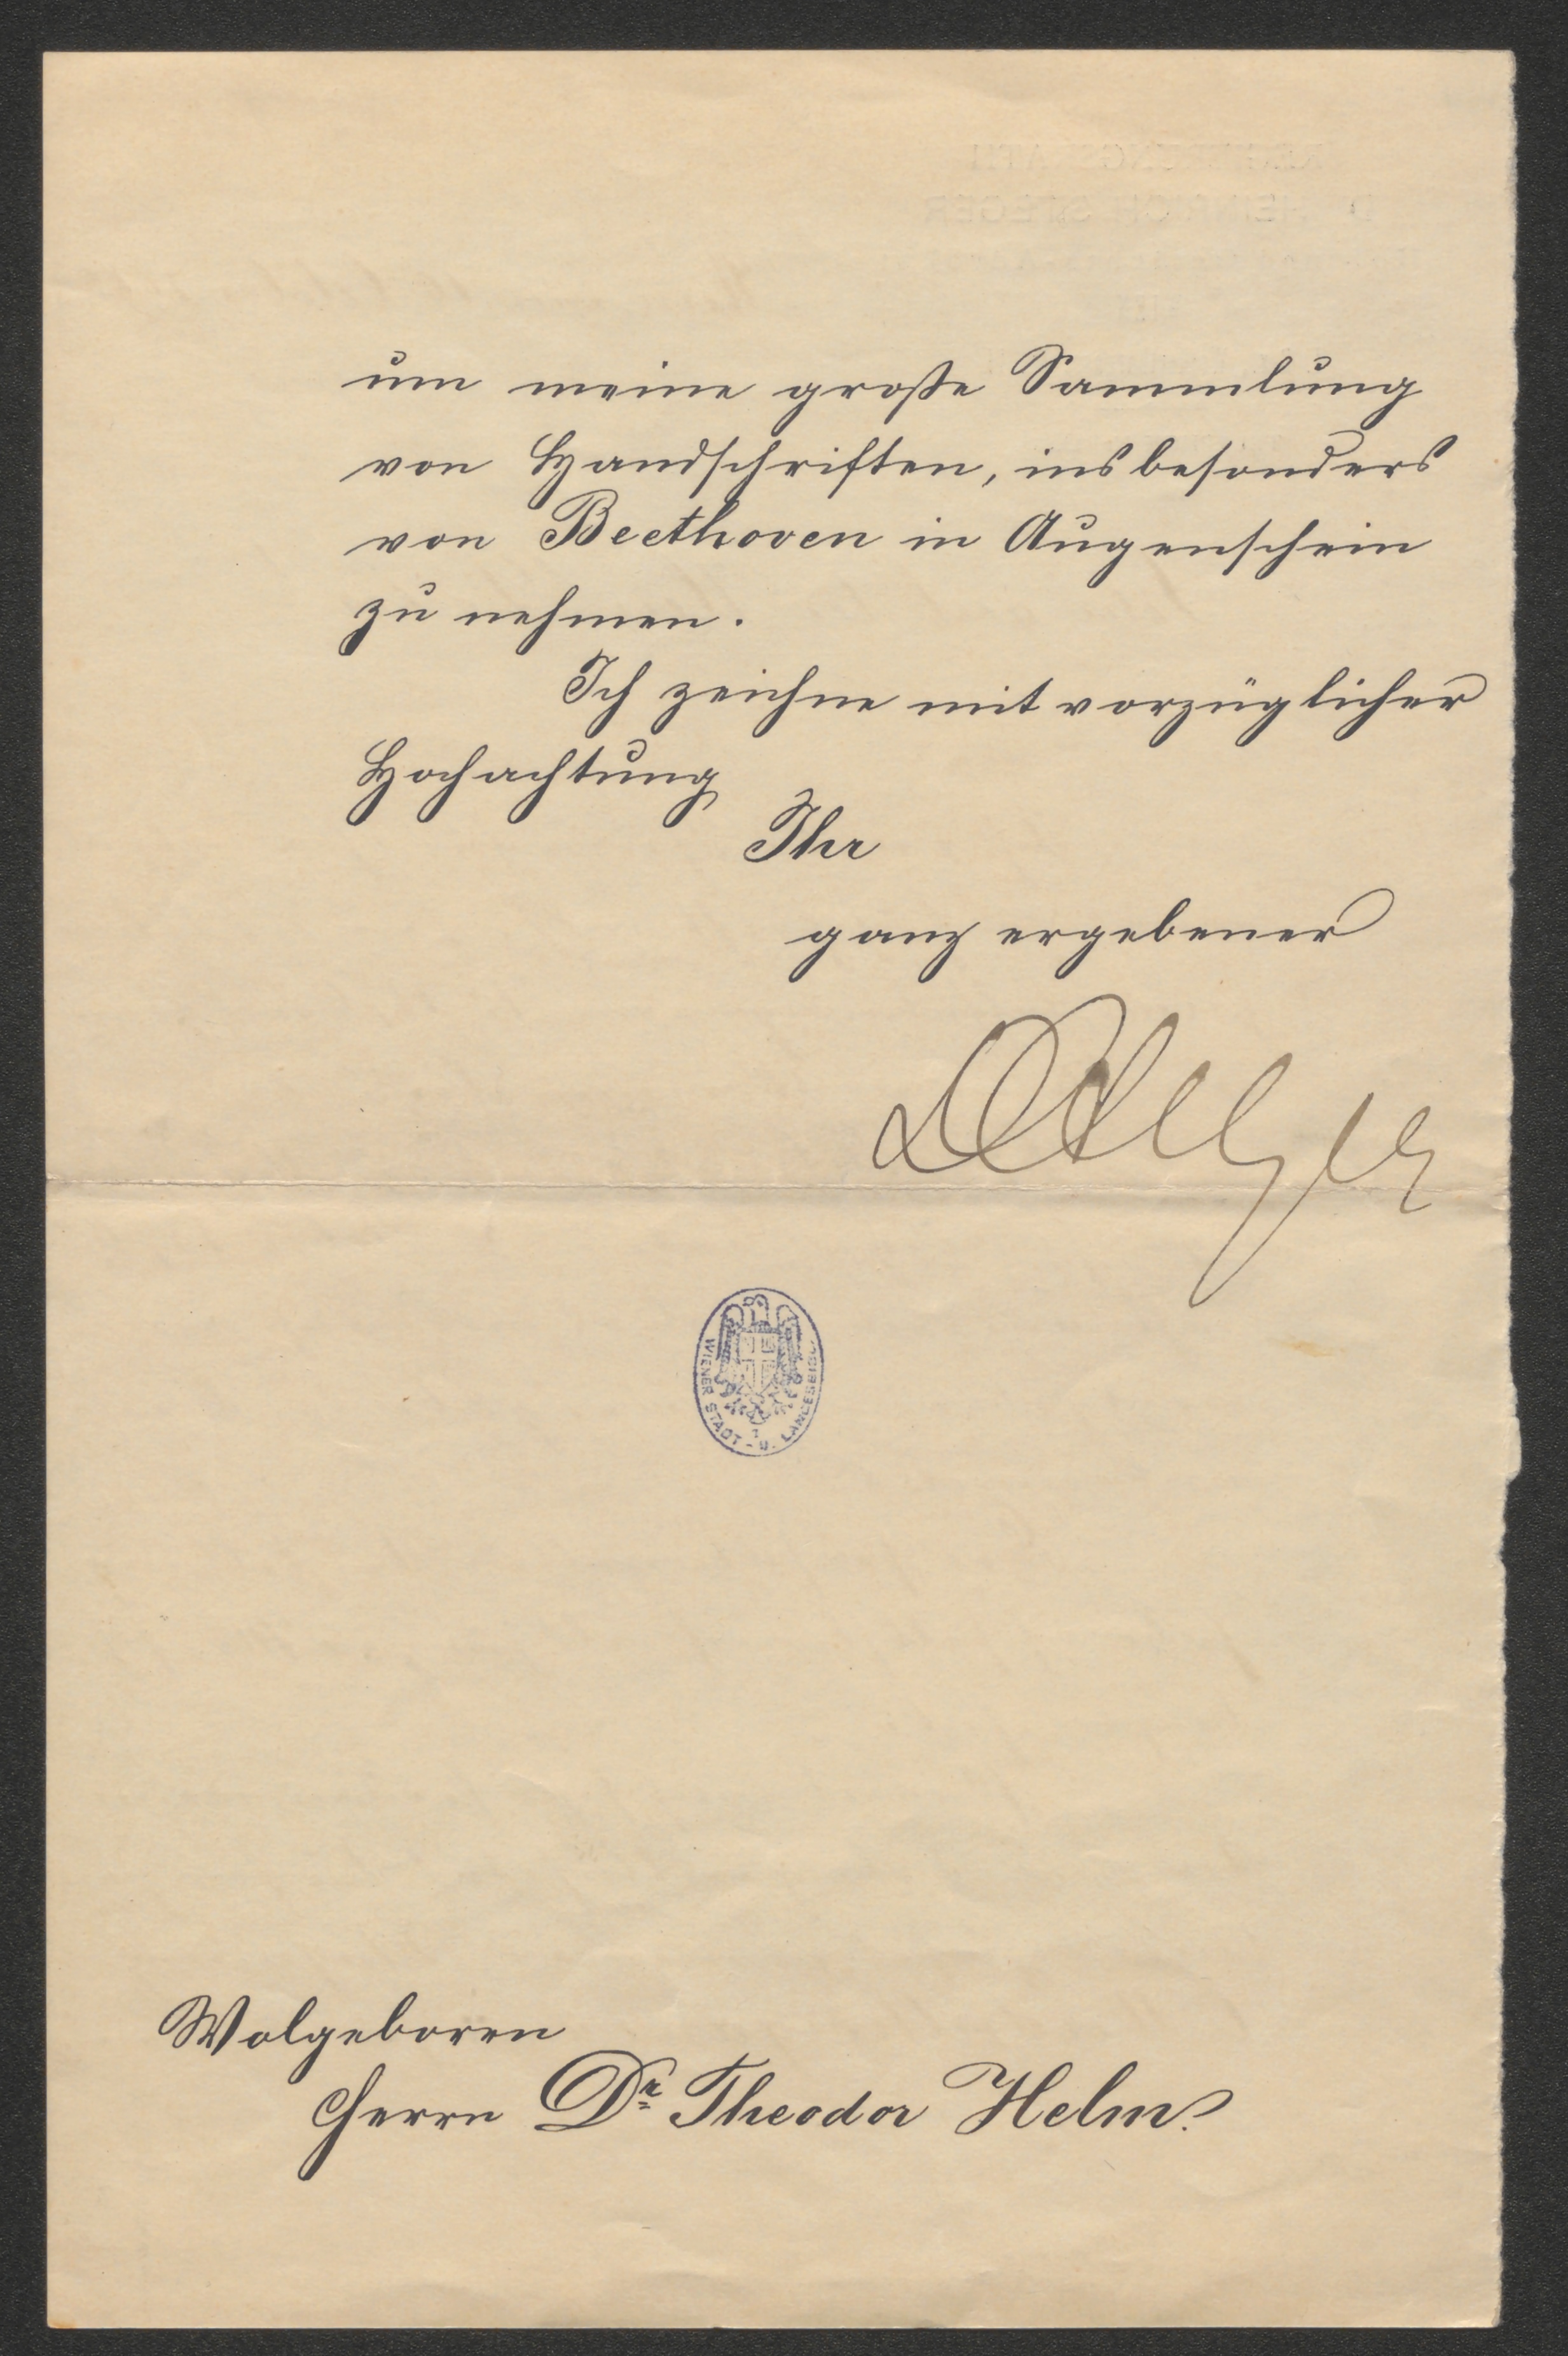 um meine große Sammlung
von Handschriften, insbesonders
von Beethoven in Augenschein
zu nehmen.
Ich zeichne mit vorzüglicher
Hochachtung
Ihr
ganz ergebener
DrSteger
WIENER STADT - U. LANDESBIBL.
Wolgeboren
Herrn Dr. Theodor Helm.